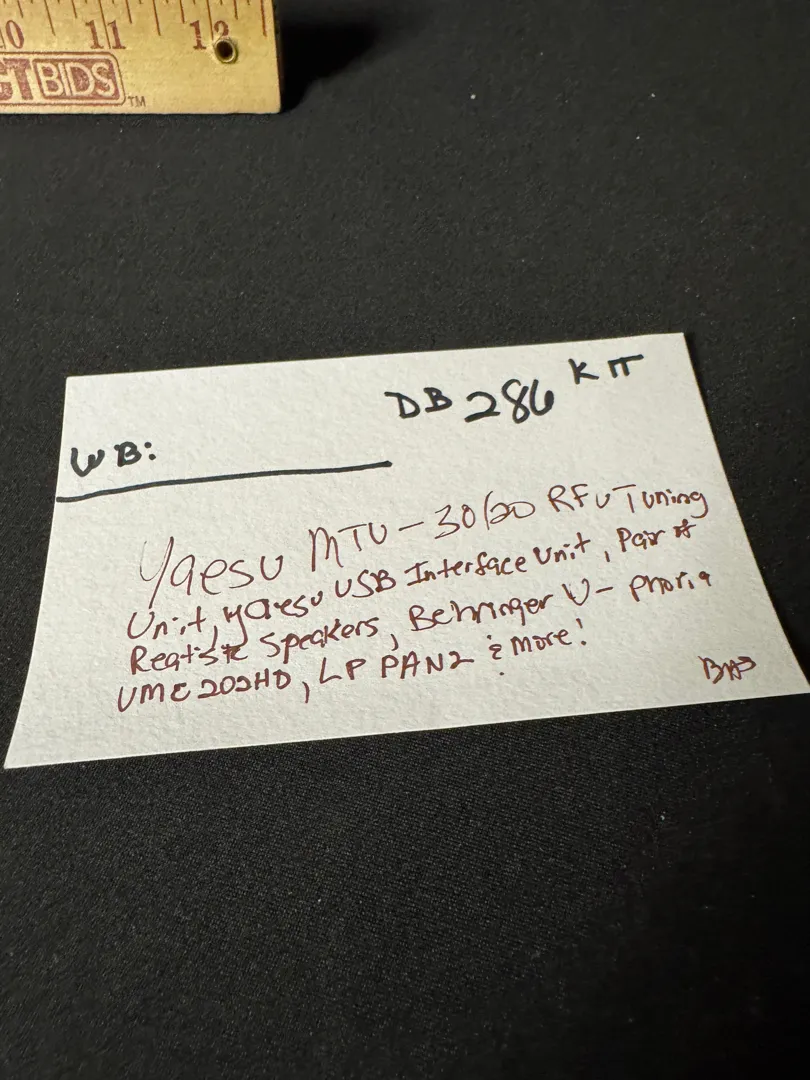 10 11 12
CT BIDS TM
DB 286 KIT
WB:
Yaesu MTU-30/20 RFU Tuning
Unit, Yaesu USB Interface Unit, Pair of
Reatistic Speakers, Behringer U-phoria
UMC 202HD, LP PAN2 & more!